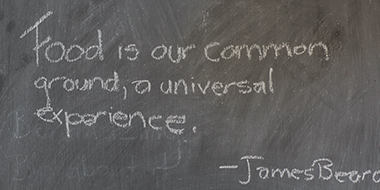 Food is our common
ground, a universal
experience.
-James Beard